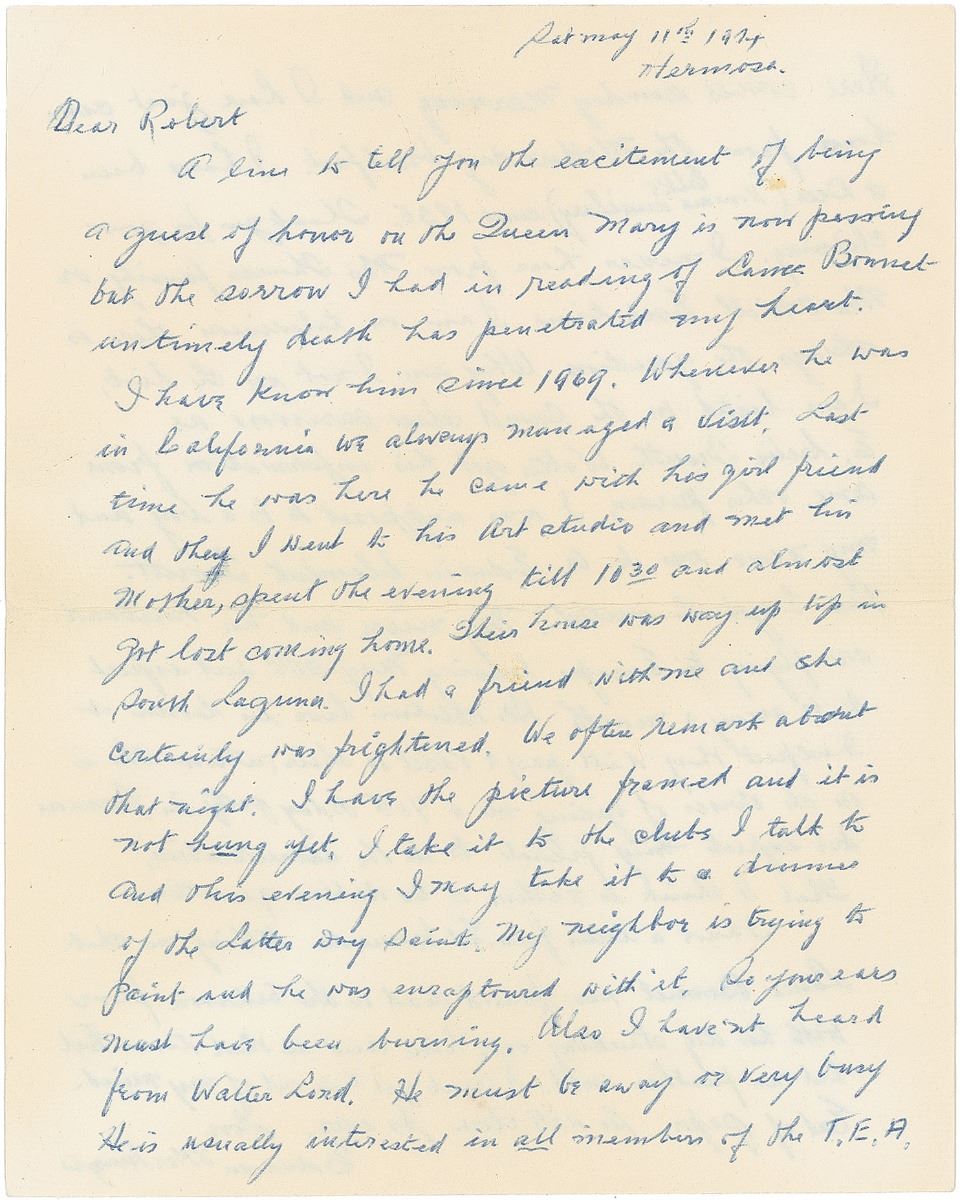 Sat May 11th 1974
Hermosa.
Dear Robert
A line to tell you the excitement of being
a guest of honor on the Queen Mary is now passing
but the sorrow I had in reading of Lance Bonnet
untimely death has penetrated my heart.
I have know him since 1969. Whenever he was
in California we always managed a visit. Last
time he was here he came with his girl friend
and they I went to his Art studio and met his
Mother, spent the evening till 10 30 and almost
got lost coming home. Their house was way up top in
South Laguna. I had a friend with me and she
certainly was frightened. We often remark about
that night. I have the picture framed and it is
not hung yet. I take it to the clubs I talk to
and this evening I may take it to a dinner
of the Latter Day Saint. My neighbor is trying to
paint and he was enraptured with it. So your ears
must have been burning. Also I have'nt heard
from Walter Lord. He must be away or very busy
He is usually interested in all members of the T.E.A.